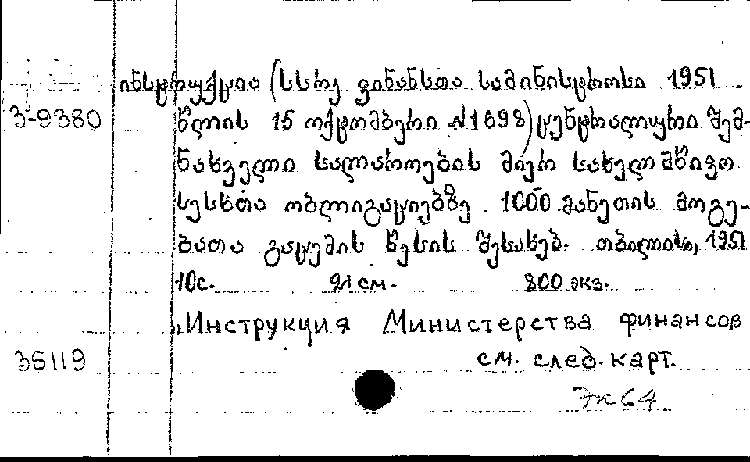 ინსტრუქცია (სსრკ ფინანსთა სამინისტროსი 1951
3-9380 წლის 15 ოქტომბერი №1698) ცენტრალური შემ-
ნახველი სალაროების მიერ სახელმწიფო
სესხთა ობლიგაციებზე 1000 მანეთის მოგე-
ბათა გაცემის წესის შესახებ. თბილისი, 1951
10с. 21 см. 800 экз.
Инструкция Министерства финансов
36119 см. след. карт.